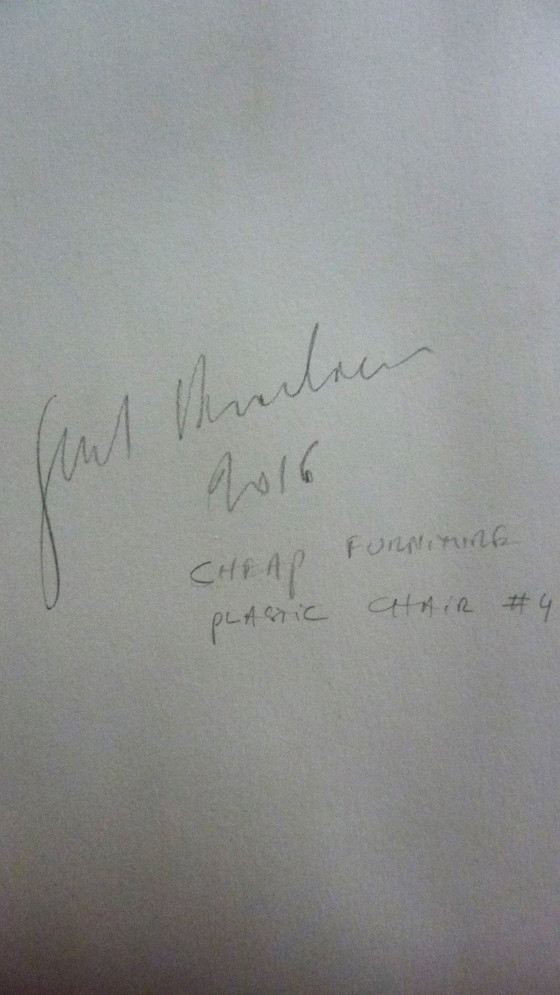 2016
CHEAP FURNITURE
PLASTIC CHAIR #4